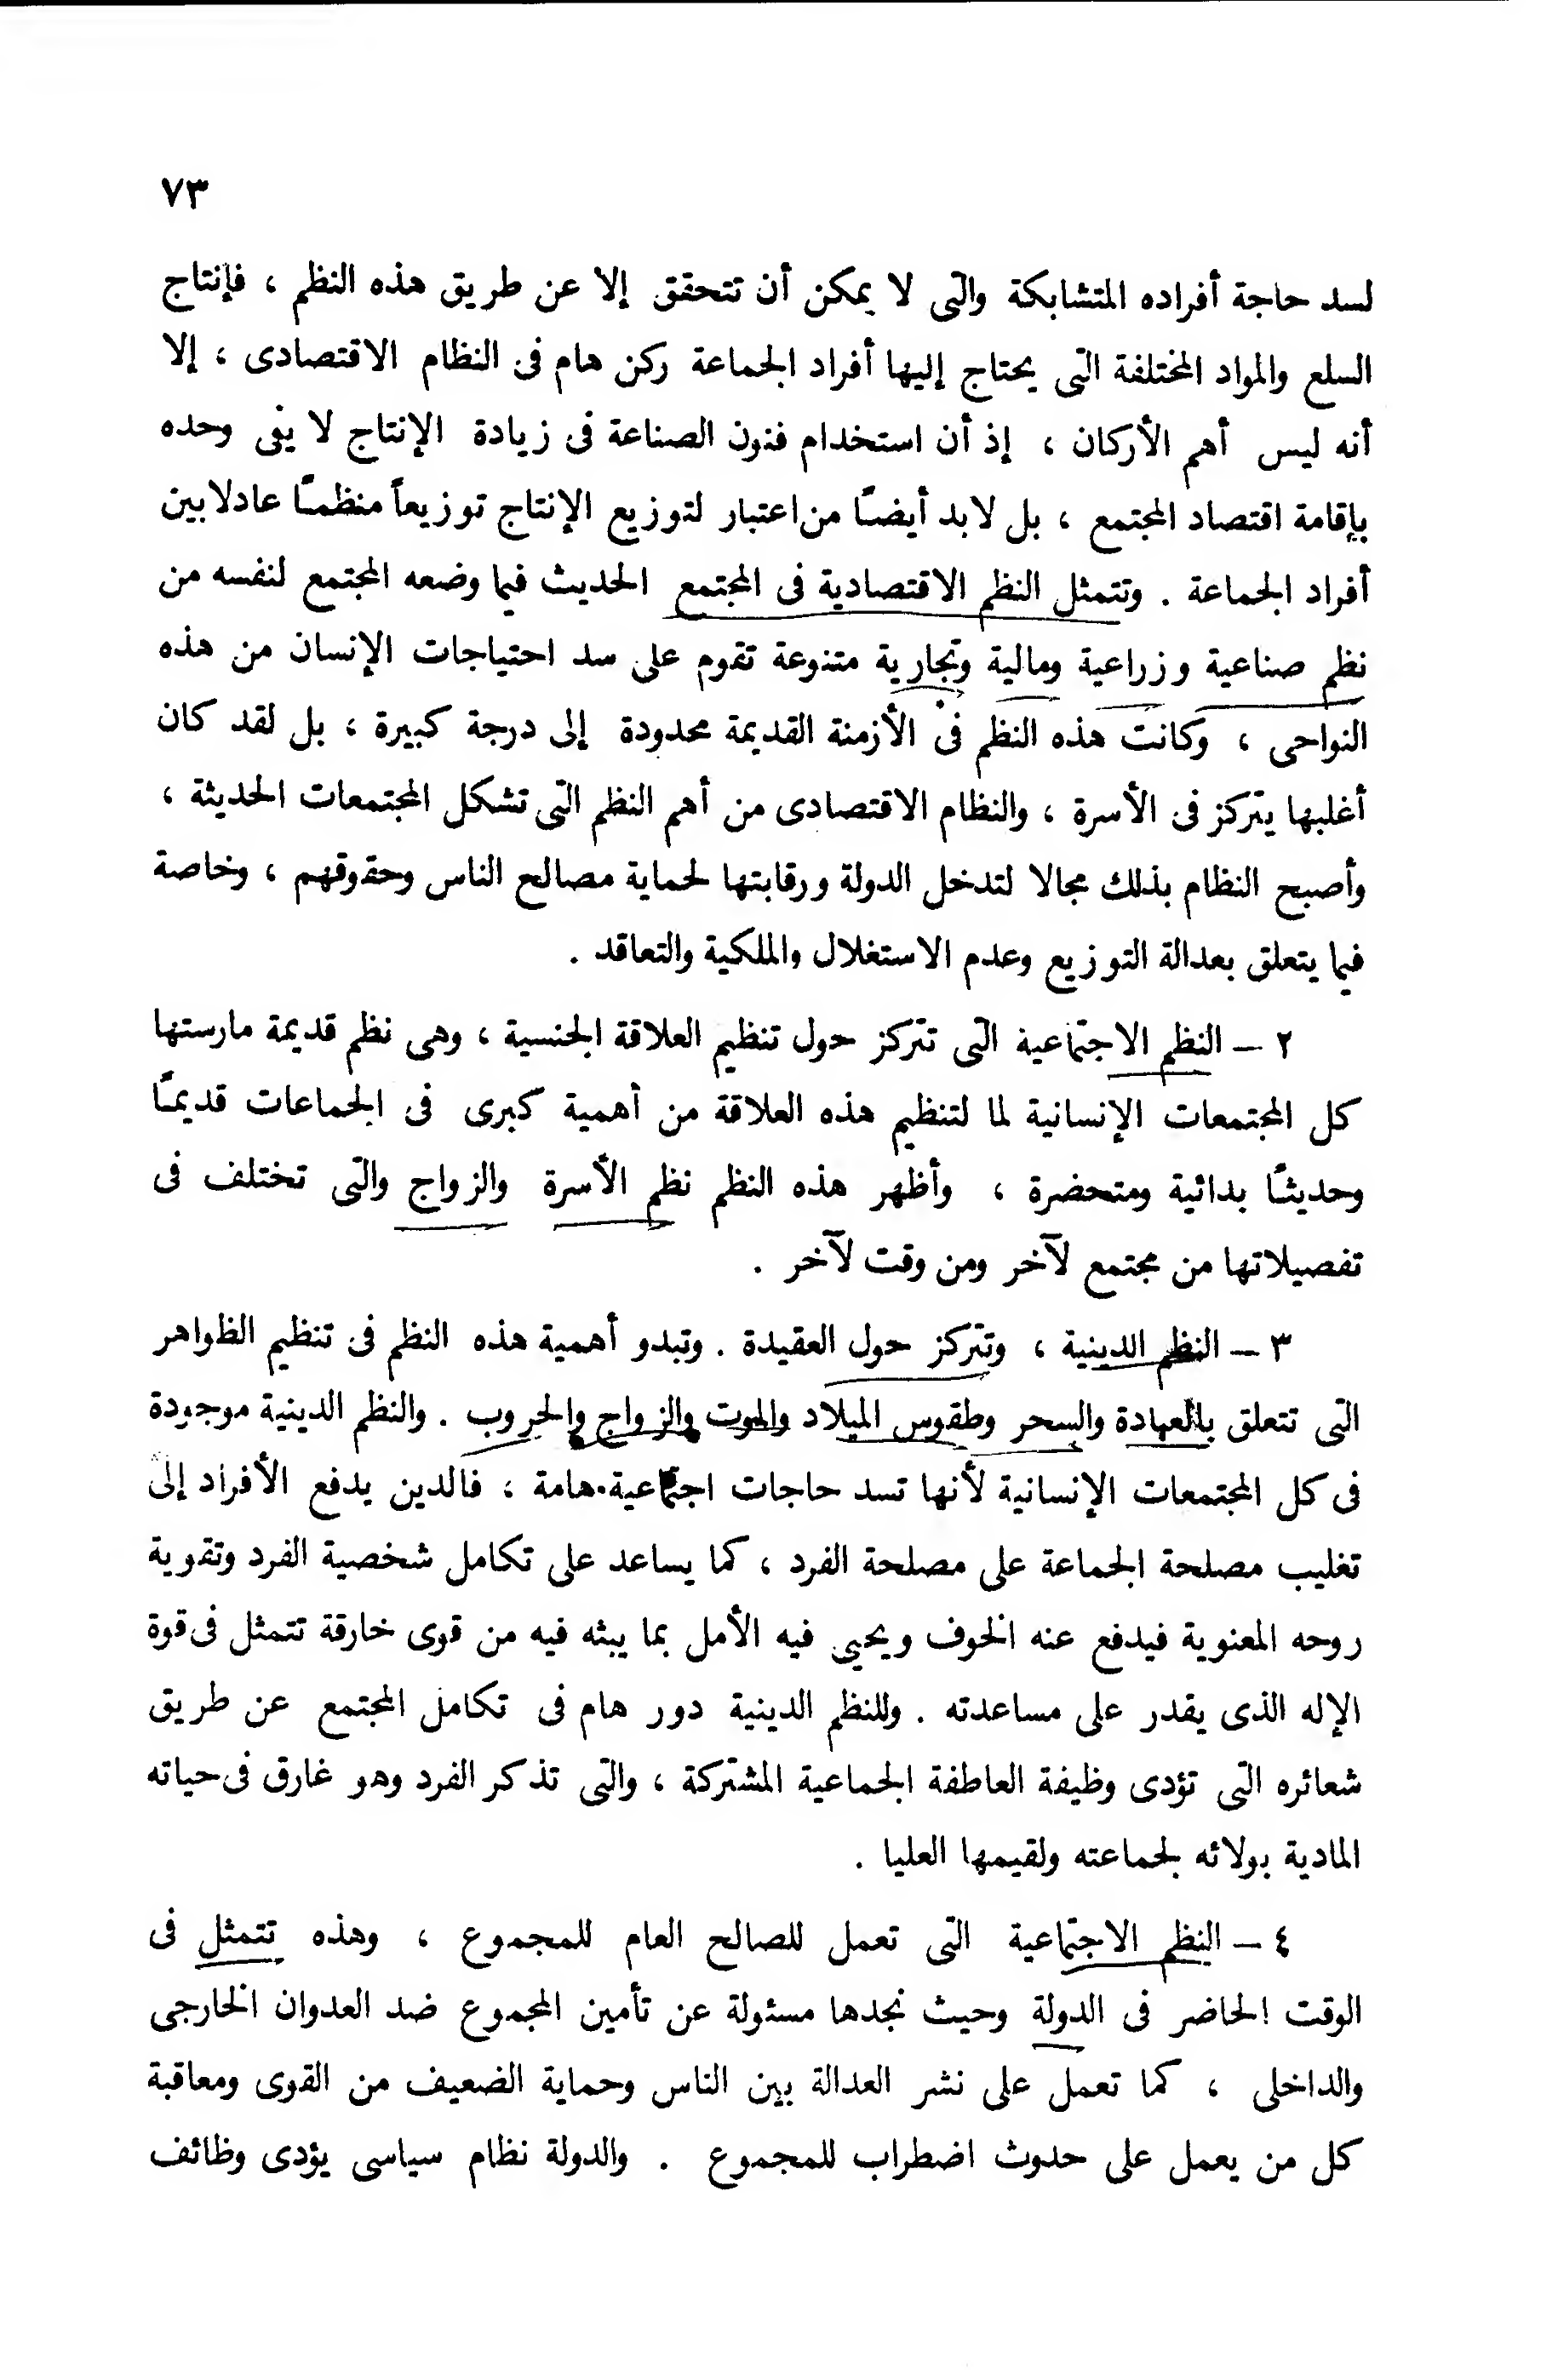 ٧٣
لسد حاجة أفراده المتشابكة والتى لا يمكن أن تتحقق إلا عن طريق هذه النظم ، فإنتاج
السلع والمواد المختلفة التى يحتاج إليها أفراد الجماعة ركن هام فى النظام الاقتصادى ، إلا
أنه ليس أهم الأركان ، إذ أن استخدام فنون الصناعة فى زيادة الإنتاج لا يفى وحده
بإقامة اقتصاد المجتمع ، بل لابد أيضًا من اعتبار لتوزيع الإنتاج توزيعاً منظمًا عادلا بين
أفراد الجماعة . وتتمثل النظم الاقتصادية فى المجتمع الحديث فيما وضعه المجتمع لنفسه من
نظم صناعية وزراعية ومالية وتجارية متنوعة تقوم على سد احتياجات الإنسان من هذه
النواحى ، وكانت هذه النظم فى الأزمنة القديمة محدودة إلى درجة كبيرة ، بل لقد كان
أغلبها يتركز فى الأسرة ، والنظام الاقتصادى من أهم النظم التى تشكل المجتمعات الحديثة ،
وأصبح النظام بذلك مجالا لتدخل الدولة ورقابتها لحماية مصالح الناس وحقوقهم ، وخاصة
فيما يتعلق بعدالة التوزيع وعدم الاستغلال والملكية والتعاقد .
٢ – النظم الاجتماعية التى تتركز حول تنظيم العلاقة الجنسية ، وهى نظم قديمة مارستها
كل المجتمعات الإنسانية لما لتنظيم هذه العلاقة من أهمية كبرى فى الجماعات قديمًا
وحديثًا بدائية ومتحضرة ، وأظهر هذه النظم نظم الأسرة والزواج والتى تختلف فى
تفصيلاتها من مجتمع لآخر ومن وقت لآخر .
٣ – النظم الدينية ، وتتركز حول العقيدة . وتبدو أهمية هذه النظم فى تنظيم الظواهر
التى تتعلق بالعبادة والسحر وطقوس الميلاد والموت والزواج والحروب . والنظم الدينية موجودة
فى كل المجتمعات الإنسانية لأنها تسد حاجات اجتماعية هامة ، فالدين يدفع الأفراد إلى
تغليب مصلحة الجماعة على مصلحة الفرد ، كما يساعد على تكامل شخصية الفرد وتقوية
روحه المعنوية فيدفع عنه الخوف ويحيى فيه الأمل بما يبثه فيه من قوى خارقة تتمثل فى قوة
الإله الذى يقدر على مساعدته . وللنظم الدينية دور هام فى تكامل المجتمع عن طريق
شعائره التى تؤدى وظيفة العاطفة الجماعية المشتركة ، والتى تذكر الفرد وهو غارق فى حياته
المادية بولائه لجماعته ولقيمها العليا .
٤ – النظم الاجتماعية التى تعمل للصالح العام للمجموع ، وهذه تتمثل فى
الوقت الحاضر فى الدولة وحيث نجدها مسئولة عن تأمين المجموع ضد العدوان الخارجى
والداخلى ، كما تعمل على نشر العدالة بين الناس وحماية الضعيف من القوى ومعاقبة
كل من يعمل على حدوث اضطراب للمجموع . والدولة نظام سياسى يؤدى وظائف